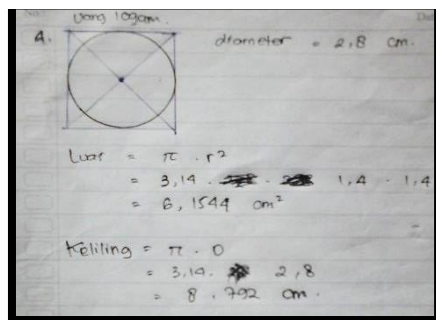 Uang logam.
4. diameter = 2,8 cm.
Luas = π . r²
= 3,14 . 1,4 . 1,4
= 6,1544 cm²
Keliling = π . D
= 3,14 . 2,8
= 8.792 cm.